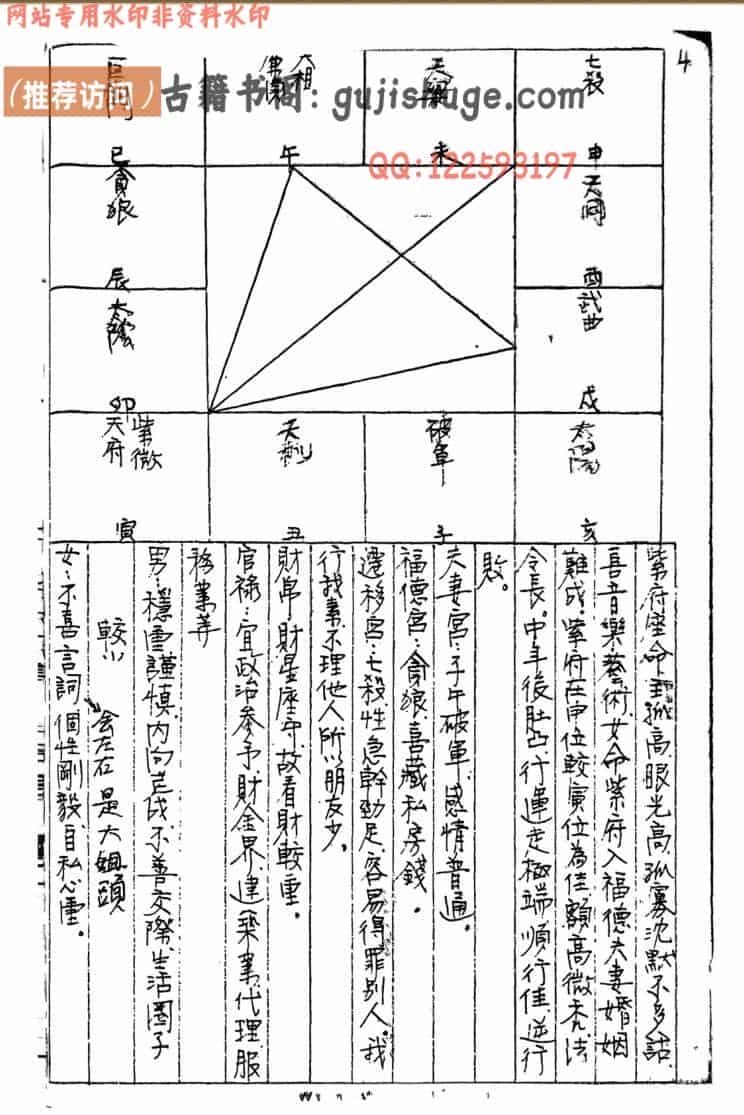 网站专用水印非资料水印
4
（推荐访问）古籍书阁：gujishuge.com
QQ:122593197
巨門
巳
天相
午
天梁
未
七殺
申
貪狼
辰
天同
酉
太陰
卯
武曲
戌
紫微
天府
寅
丑
破軍
子
太陽
亥
紫府座命主孤高、眼光高、孤寡沈默不多話、
喜音樂、藝術、女命紫府入福德夫妻婚姻
難成、紫府在申位較寅位為佳、額高微禿、法
令長。中年後肚凸、行運走極端順行佳、逆行
敗。
夫妻宮：子午破軍、感情普通。
福德宮：貪狼、喜藏私房錢。
遷移宮：七殺性急幹勁足、容易得罪別人。我
行我素、不理他人所以朋友少。
財帛：財星座守、故看財較重。
官祿：宜政治參予、財金界、建築業、代理服
務業等
男：穩重謹慎、內向老成、不善交際、生活圈子
較小
會左右是大姐頭
女：不喜言詞、個性剛毅、自私心重。